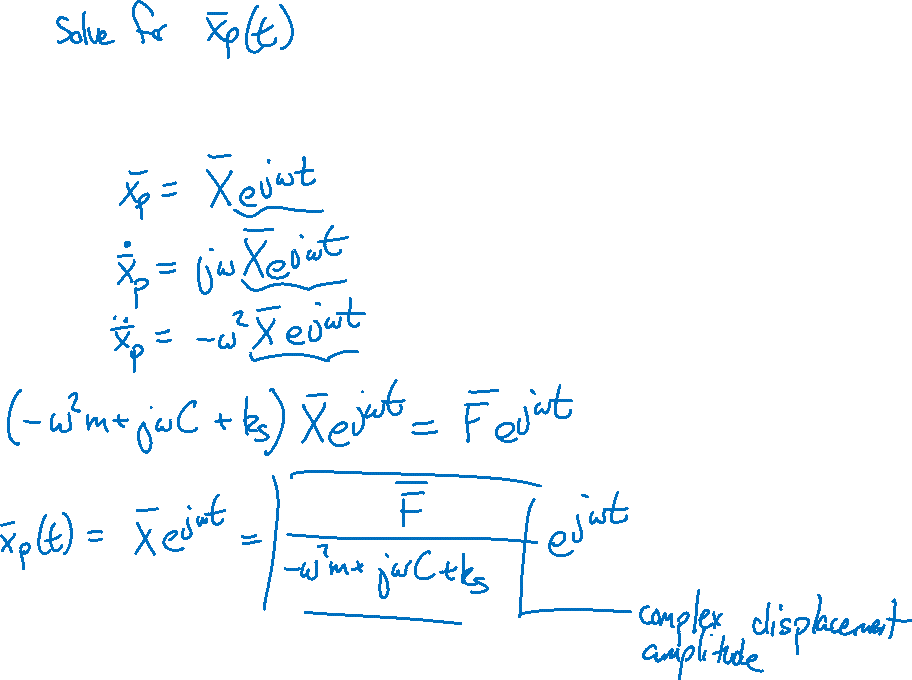 Solve for x̄ₚ(t)
x̄ₚ = X̄e^{jωt}
x̄̇ₚ = jωX̄e^{jωt}
x̄̈ₚ = -ω²X̄e^{jωt}
(-ω²m + jωC + kₛ) X̄e^{jωt} = F̄e^{jωt}
x̄ₚ(t) = X̄e^{jωt} = [F̄ / (-ω²m + jωC + kₛ)] e^{jωt}
complex displacement
amplitude